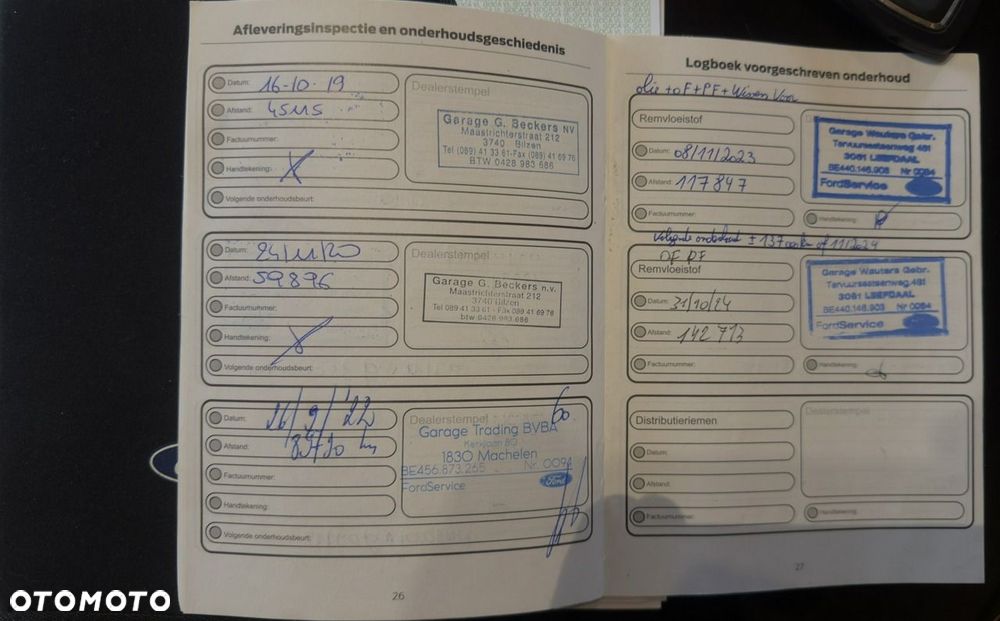 Afleveringsinspectie en onderhoudsgeschiedenis
Datum: 16-10-19
Afstand: 45115
Factuurnummer:
Handtekening:
Volgende onderhoudsbeurt:
Dealerstempel
Garage G. Beckers NV
Maastrichterstraat 212
3740 Bilzen
Tel (089) 41 33 61-Fax (089) 41 69 76
BTW 0428 983 686
Datum: 24/11/20
Afstand: 59896
Factuurnummer:
Handtekening:
Volgende onderhoudsbeurt:
Dealerstempel
Garage G. Beckers n.v.
Maastrichterstraat 212
3740 Bilzen
Tel 089 41 33 61 - Fax 089 41 69 76
btw 0428 983 686
Datum: 26/9/22
Afstand: km
Factuurnummer:
Handtekening:
Volgende onderhoudsbeurt:
Dealerstempel
Garage Trading BVBA
Kerklaan 80
1830 Machelen
BE456.873.265 Nr. 0094
FordService
Ford
26
Logboek voorgeschreven onderhoud
olie + OF + PF + Wissers Voor
Remvloeistof
Datum: 08/11/2023
Afstand: 117847
Factuurnummer:
Garage Wauters Gebr.
Tervuursesteenweg 461
3061 LEEFDAAL
BE440.146.903 Nr 0084
FordService
Handtekening:
Volgende onderhoud ± 137 000 km of 11/2024
OF PF
Remvloeistof
Datum: 31/10/24
Afstand: 142 713
Factuurnummer:
Garage Wauters Gebr.
Tervuursesteenweg 461
3061 LEEFDAAL
BE440.146.903 Nr 0084
FordService
Handtekening:
Distributieriemen
Datum:
Afstand:
Factuurnummer:
Dealerstempel
Handtekening:
27
OTOMOTO